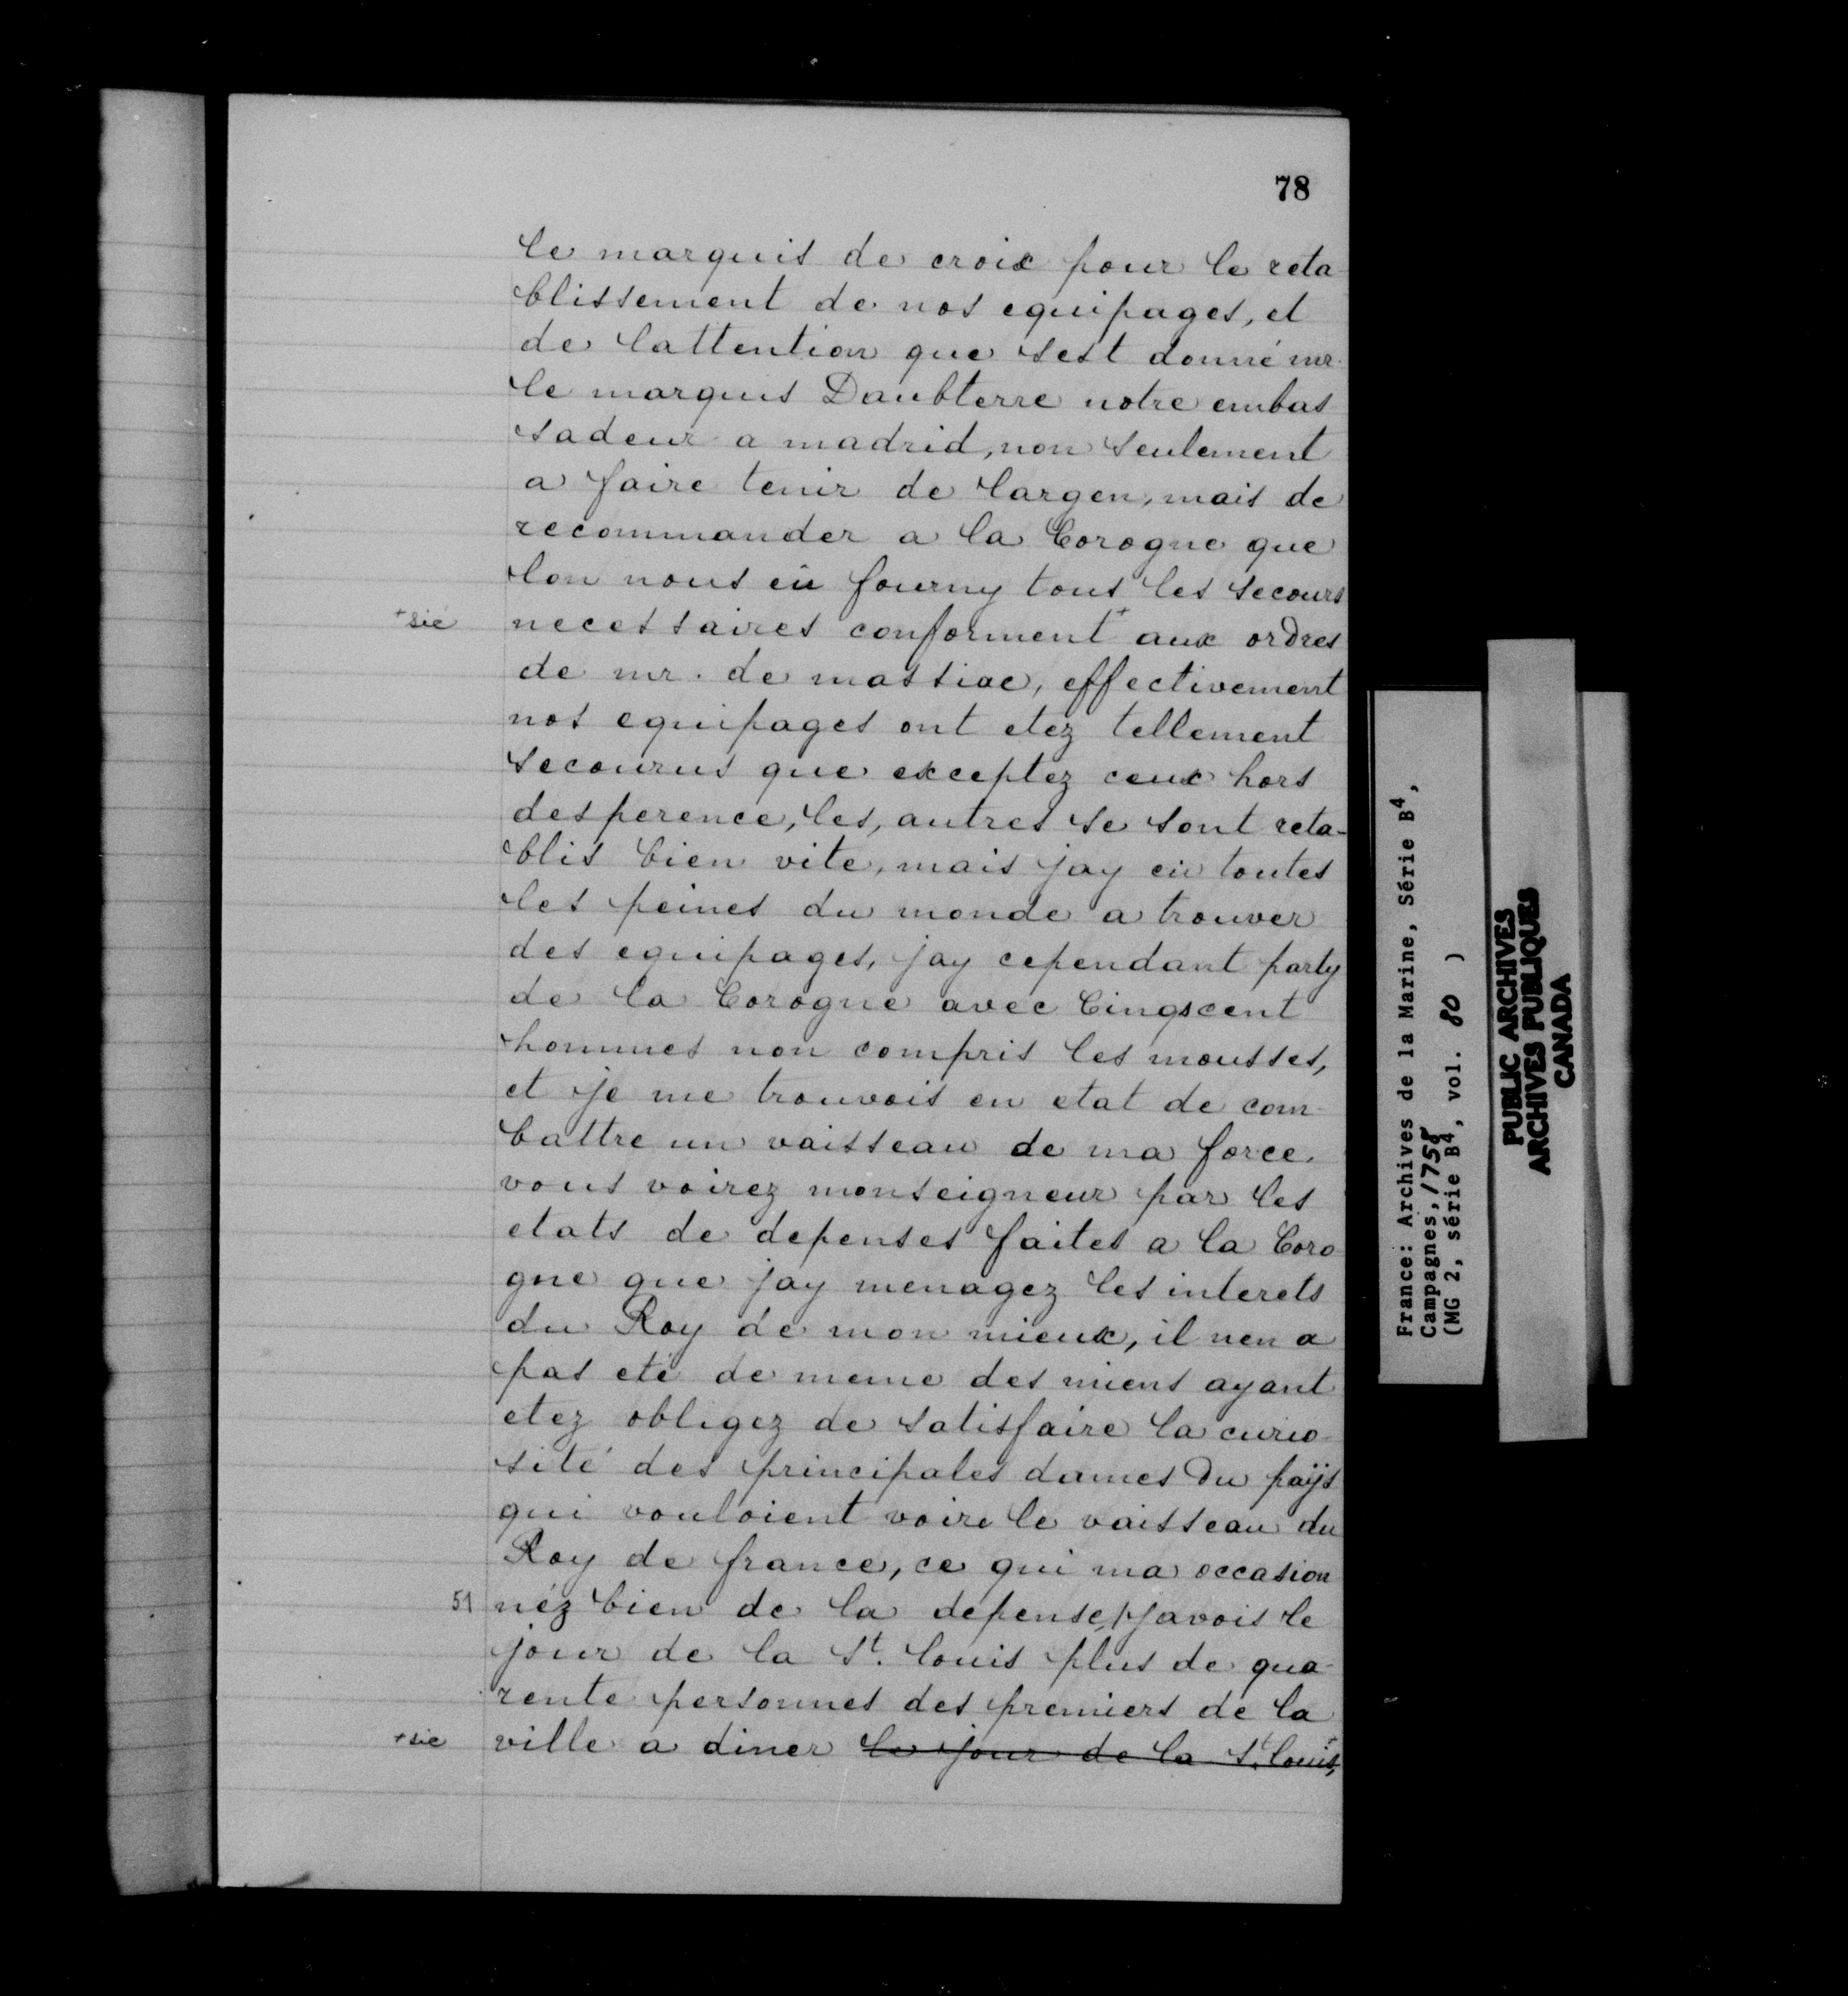 78
le marquis de croix pour le reta
blissement de nos equipages, et
de lattention que sest donné mr.
le marquis Daubterre notre embas
sadeur a madrid, non seulement
a faire tenir de largen, mais de
recommander a la Corogne que
lon nous eü fourny tous les secours
+sic necessaires conforment+ aux ordres
de mr. de massiac, effectivement
nos equipages ont etez tellement
secourus que exceptez ceux hors
desperence, les, autres se sont reta-
blis bien vite, mais jay eü toutes
les peines du monde a trouver
des equipages, jay cependant party
de la Corogne avec Cinqscent
hommes non compris les mousses,
et je me trouvois en etat de com-
battre un vaisseau de ma force.
vous voirez monseigneur par les
etats de depenses faites a la Coro
gne que jay menagez les interets
du Roy de mon mieux, il nen a
pas eté de meme des miens ayant
etez obligez de satisfaire la curio-
sité des principales dames du païjs
qui vouloient voire le vaisseau du
Roy de france, ce qui ma occasion
51 néz bien de la depense,/javois le
jour de la St. louis plus de qua-
rente personnes des premiers de la
+sic ville a diner le jour de la St. louis,+
France: Archives de la Marine, Série B4,
Campagnes, 1758
(MG 2, série B4, vol. 80 )
PUBLIC ARCHIVES
ARCHIVES PUBLIQUES
CANADA